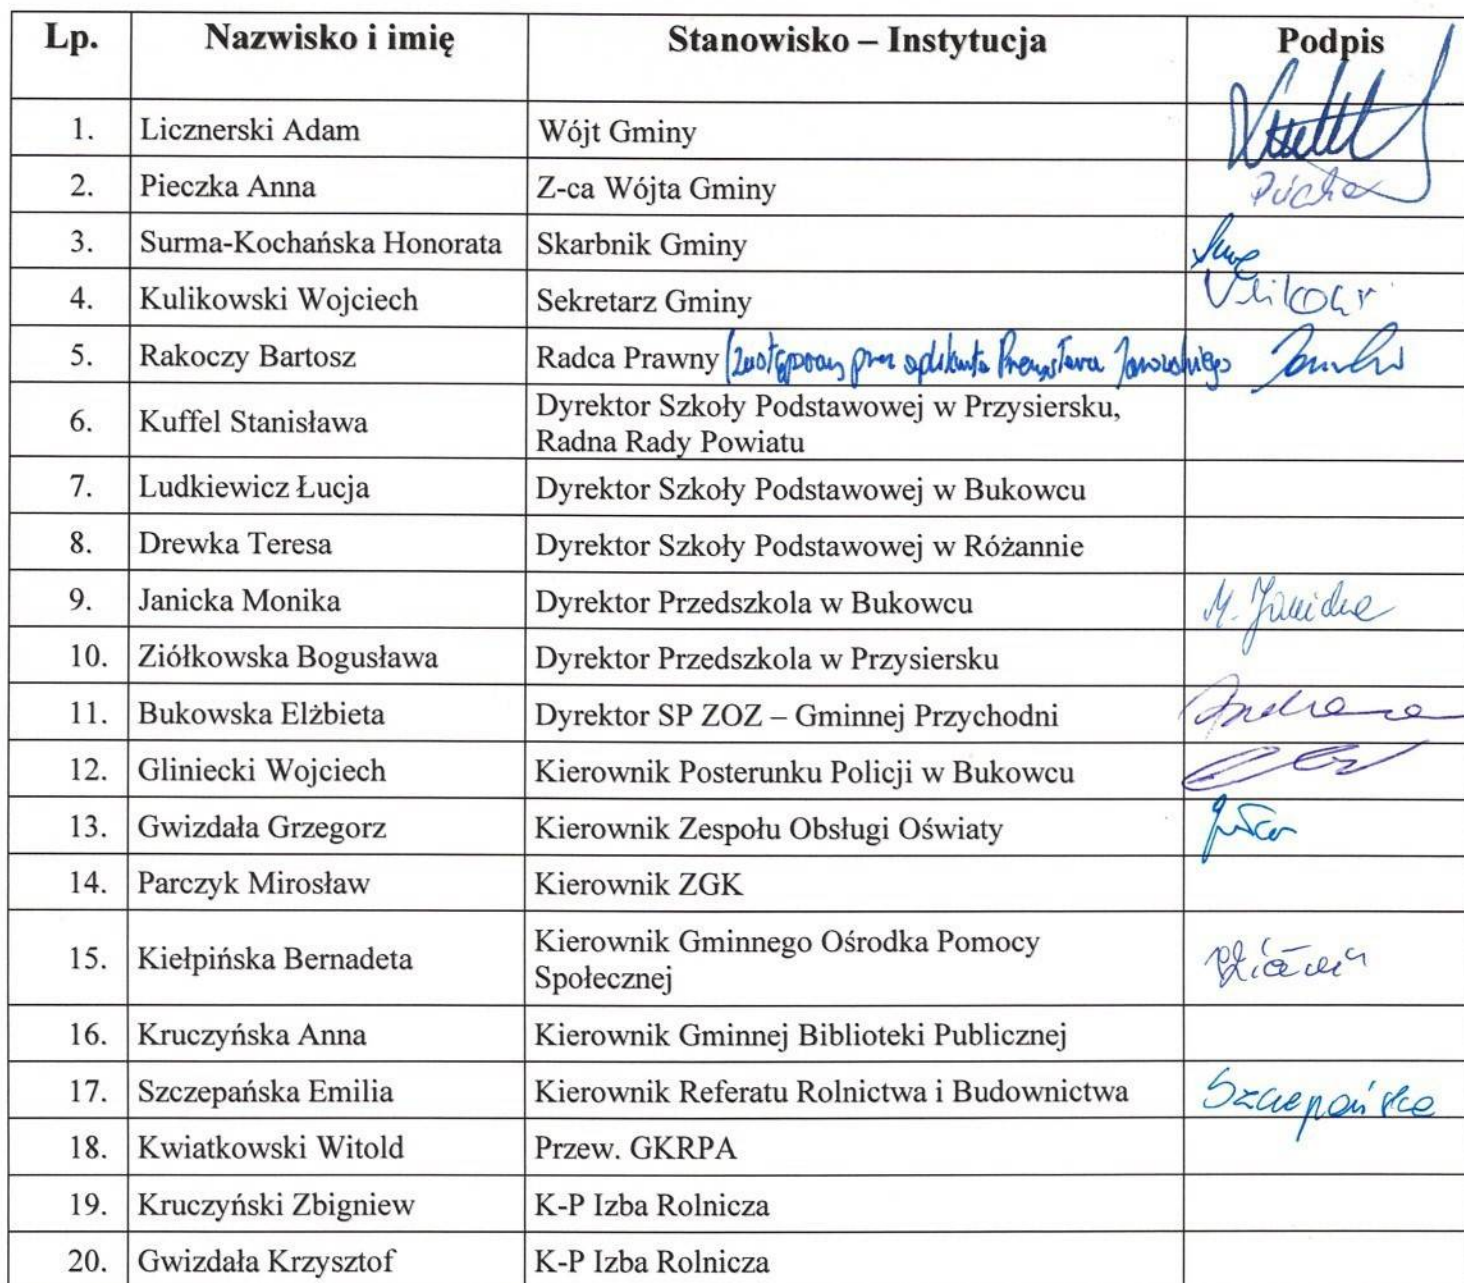 Lp. Nazwisko i imię Stanowisko – Instytucja Podpis
1. Licznerski Adam Wójt Gminy
2. Pieczka Anna Z-ca Wójta Gminy
3. Surma-Kochańska Honorata Skarbnik Gminy
4. Kulikowski Wojciech Sekretarz Gminy
5. Rakoczy Bartosz Radca Prawny (zastępowany przez aplikanta Przemysława Jaworskiego
6. Kuffel Stanisława Dyrektor Szkoły Podstawowej w Przysiersku,
Radna Rady Powiatu
7. Ludkiewicz Łucja Dyrektor Szkoły Podstawowej w Bukowcu
8. Drewka Teresa Dyrektor Szkoły Podstawowej w Różannie
9. Janicka Monika Dyrektor Przedszkola w Bukowcu M. Janicka
10. Ziółkowska Bogusława Dyrektor Przedszkola w Przysiersku
11. Bukowska Elżbieta Dyrektor SP ZOZ – Gminnej Przychodni
12. Gliniecki Wojciech Kierownik Posterunku Policji w Bukowcu
13. Gwizdała Grzegorz Kierownik Zespołu Obsługi Oświaty
14. Parczyk Mirosław Kierownik ZGK
15. Kiełpińska Bernadeta Kierownik Gminnego Ośrodka Pomocy
Społecznej
16. Kruczyńska Anna Kierownik Gminnej Biblioteki Publicznej
17. Szczepańska Emilia Kierownik Referatu Rolnictwa i Budownictwa Szczepańska
18. Kwiatkowski Witold Przew. GKRPA
19. Kruczyński Zbigniew K-P Izba Rolnicza
20. Gwizdała Krzysztof K-P Izba Rolnicza